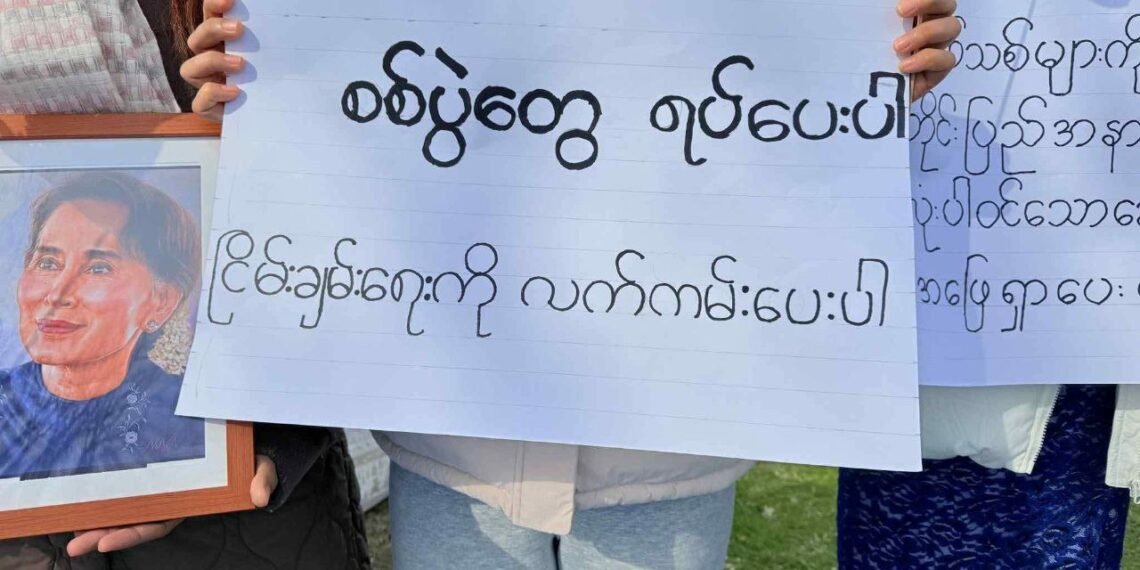 စစ်ပွဲတွေ ရပ်ပေးပါ
ငြိမ်းချမ်းရေးကို လက်ကမ်းပေးပါ
သစ်များကို
တိုင်းပြည်အနာ
ပါဝင်သော
အဖြေရှာပေး